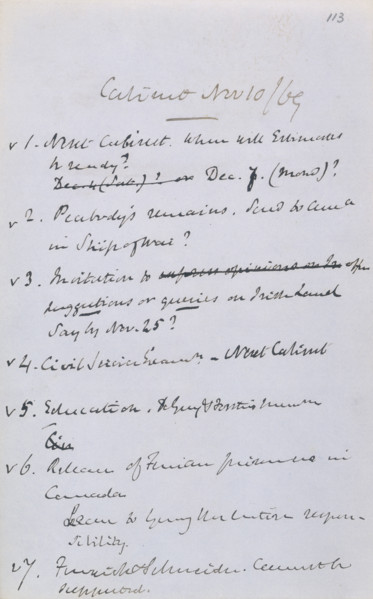 113
Cabinet Nov 10/69
v 1. Next Cabinet. When will Estimates
be ready?
Dec. 4 (Sat.)? or Dec. 7. (Mond)?
v 2. Peabody's remains. Send to America
in Ship of War?
v 3. Invitation to express opinions on Ir offer
suggestions or queries on Irish Land
Say by Nov. 25?
v 4. Civil Service Examns. – Next Cabinet
v 5. Education. De Grey & Forster's memm
Civ
v 6. Release of Fenian prisoners in
Canada
Leave to Young the entire respon-
sibility.
v 7. Schneider. Cannot be
supported.